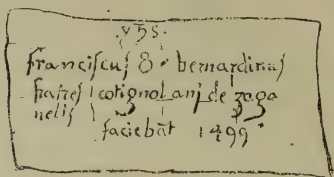 yhs
franciscus & bernardinus
fratres cotignolani de zaga
nelis
faciebāt 1499